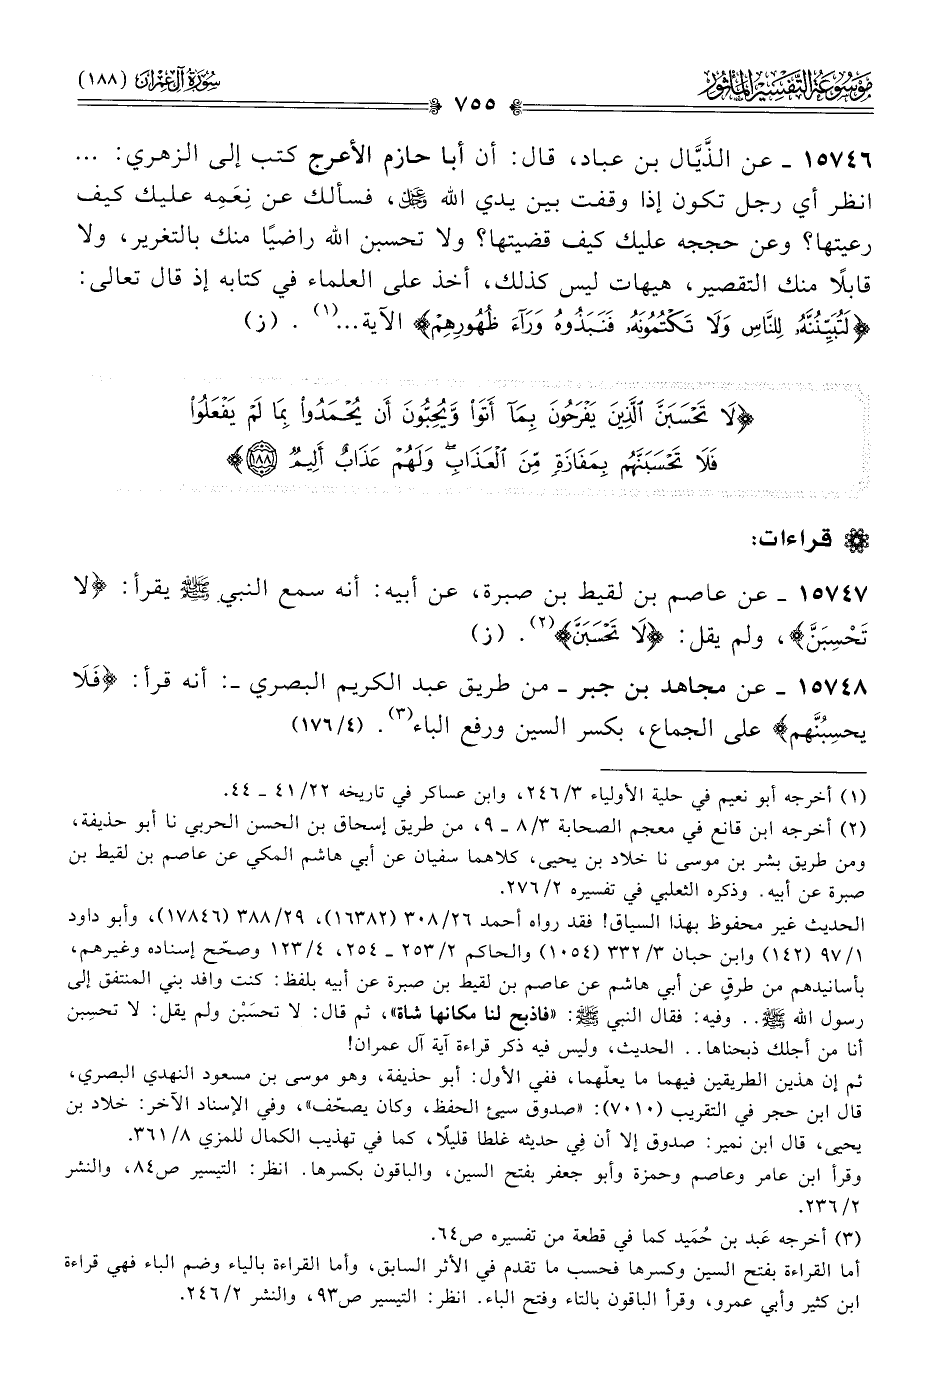 موسوعة التفسير المأثور
سورة آل عمران (١٨٨)
٧٥٥
١٥٧٤٦ ـ عن الذَّيَّال بن عباد، قال: أن أبا حازم الأعرج كتب إلى الزهري: ...
انظر أي رجل تكون إذا وقفت بين يدي الله ﷿، فسألك عن نِعَمِه عليك كيف
رعيتها؟ وعن حججه عليك كيف قضيتها؟ ولا تحسبن الله راضيًا منك بالتغرير، ولا
قابلًا منك التقصير، هيهات ليس كذلك، أخذ على العلماء في كتابه إذ قال تعالى:
﴿لَتُبَيِّنُنَّهُۥ لِلنَّاسِ وَلَا تَكْتُمُونَهُۥ فَنَبَذُوهُ وَرَآءَ ظُهُورِهِمْ﴾ الآية...(١). (ز)
﴿لَا تَحْسَبَنَّ ٱلَّذِينَ يَفْرَحُونَ بِمَآ أَتَوا۟ وَّيُحِبُّونَ أَن يُحْمَدُوا۟ بِمَا لَمْ يَفْعَلُوا۟
فَلَا تَحْسَبَنَّهُم بِمَفَازَةٍ مِّنَ ٱلْعَذَابِ ۖ وَلَهُمْ عَذَابٌ أَلِيمٌ ۝١٨٨﴾
قراءات:
١٥٧٤٧ ـ عن عاصم بن لقيط بن صبرة، عن أبيه: أنه سمع النبي ﷺ يقرأ: ﴿لا
تَحْسِبَنَّ﴾، ولم يقل: ﴿لَا تَحْسَبَنَّ﴾(٢). (ز)
١٥٧٤٨ ـ عن مجاهد بن جبر ـ من طريق عبد الكريم البصري ـ: أنه قرأ: ﴿فَلَا
يحسِبُنَّهم﴾ على الجماع، بكسر السين ورفع الباء(٣). (١٧٦/٤)
(١) أخرجه أبو نعيم في حلية الأولياء ٢٤٦/٣، وابن عساكر في تاريخه ٤١/٢٢ ـ ٤٤.
(٢) أخرجه ابن قانع في معجم الصحابة ٨/٣ ـ ٩، من طريق إسحاق بن الحسن الحربي نا أبو حذيفة،
ومن طريق بشر بن موسى نا خلاد بن يحيى، كلاهما سفيان عن أبي هاشم المكي عن عاصم بن لقيط بن
صبرة عن أبيه. وذكره الثعلبي في تفسيره ٢٧٦/٢.
الحديث غير محفوظ بهذا السياق! فقد رواه أحمد ٣٠٨/٢٦ (١٦٣٨٢)، ٣٨٨/٢٩ (١٧٨٤٦)، وأبو داود
٩٧/١ (١٤٢) وابن حبان ٣٣٢/٣ (١٠٥٤) والحاكم ٢٥٣/٢ ـ ٢٥٤، ١٢٣/٤ وصحّح إسناده وغيرهم،
بأسانيدهم من طرقٍ عن أبي هاشم عن عاصم بن لقيط بن صبرة عن أبيه بلفظ: كنت وافد بني المنتفق إلى
رسول الله ﷺ.. وفيه: فقال النبي ﷺ: «فاذبح لنا مكانها شاة»، ثم قال: لا تحسَبْن ولم يقل: لا تحسِبن
أنا من أجلك ذبحناها.. الحديث، وليس فيه ذكر قراءة آية آل عمران!
ثم إن هذين الطريقين فيهما ما يعلّهما، ففي الأول: أبو حذيفة، وهو موسى بن مسعود النهدي البصري،
قال ابن حجر في التقريب (٧٠١٠): «صدوق سيئ الحفظ، وكان يصحّف»، وفي الإسناد الآخر: خلاد بن
يحيى، قال ابن نمير: صدوق إلا أن في حديثه غلطا قليلًا، كما في تهذيب الكمال للمزي ٣٦١/٨.
وقرأ ابن عامر وعاصم وحمزة وأبو جعفر بفتح السين، والباقون بكسرها. انظر: التيسير ص٨٤، والنشر
٢٣٦/٢.
(٣) أخرجه عَبد بن حُمَيد كما في قطعة من تفسيره ص٦٤.
أما القراءة بفتح السين وكسرها فحسب ما تقدم في الأثر السابق، وأما القراءة بالياء وضم الباء فهي قراءة
ابن كثير وأبي عمرو، وقرأ الباقون بالتاء وفتح الباء. انظر: التيسير ص٩٣، والنشر ٢٤٦/٢.